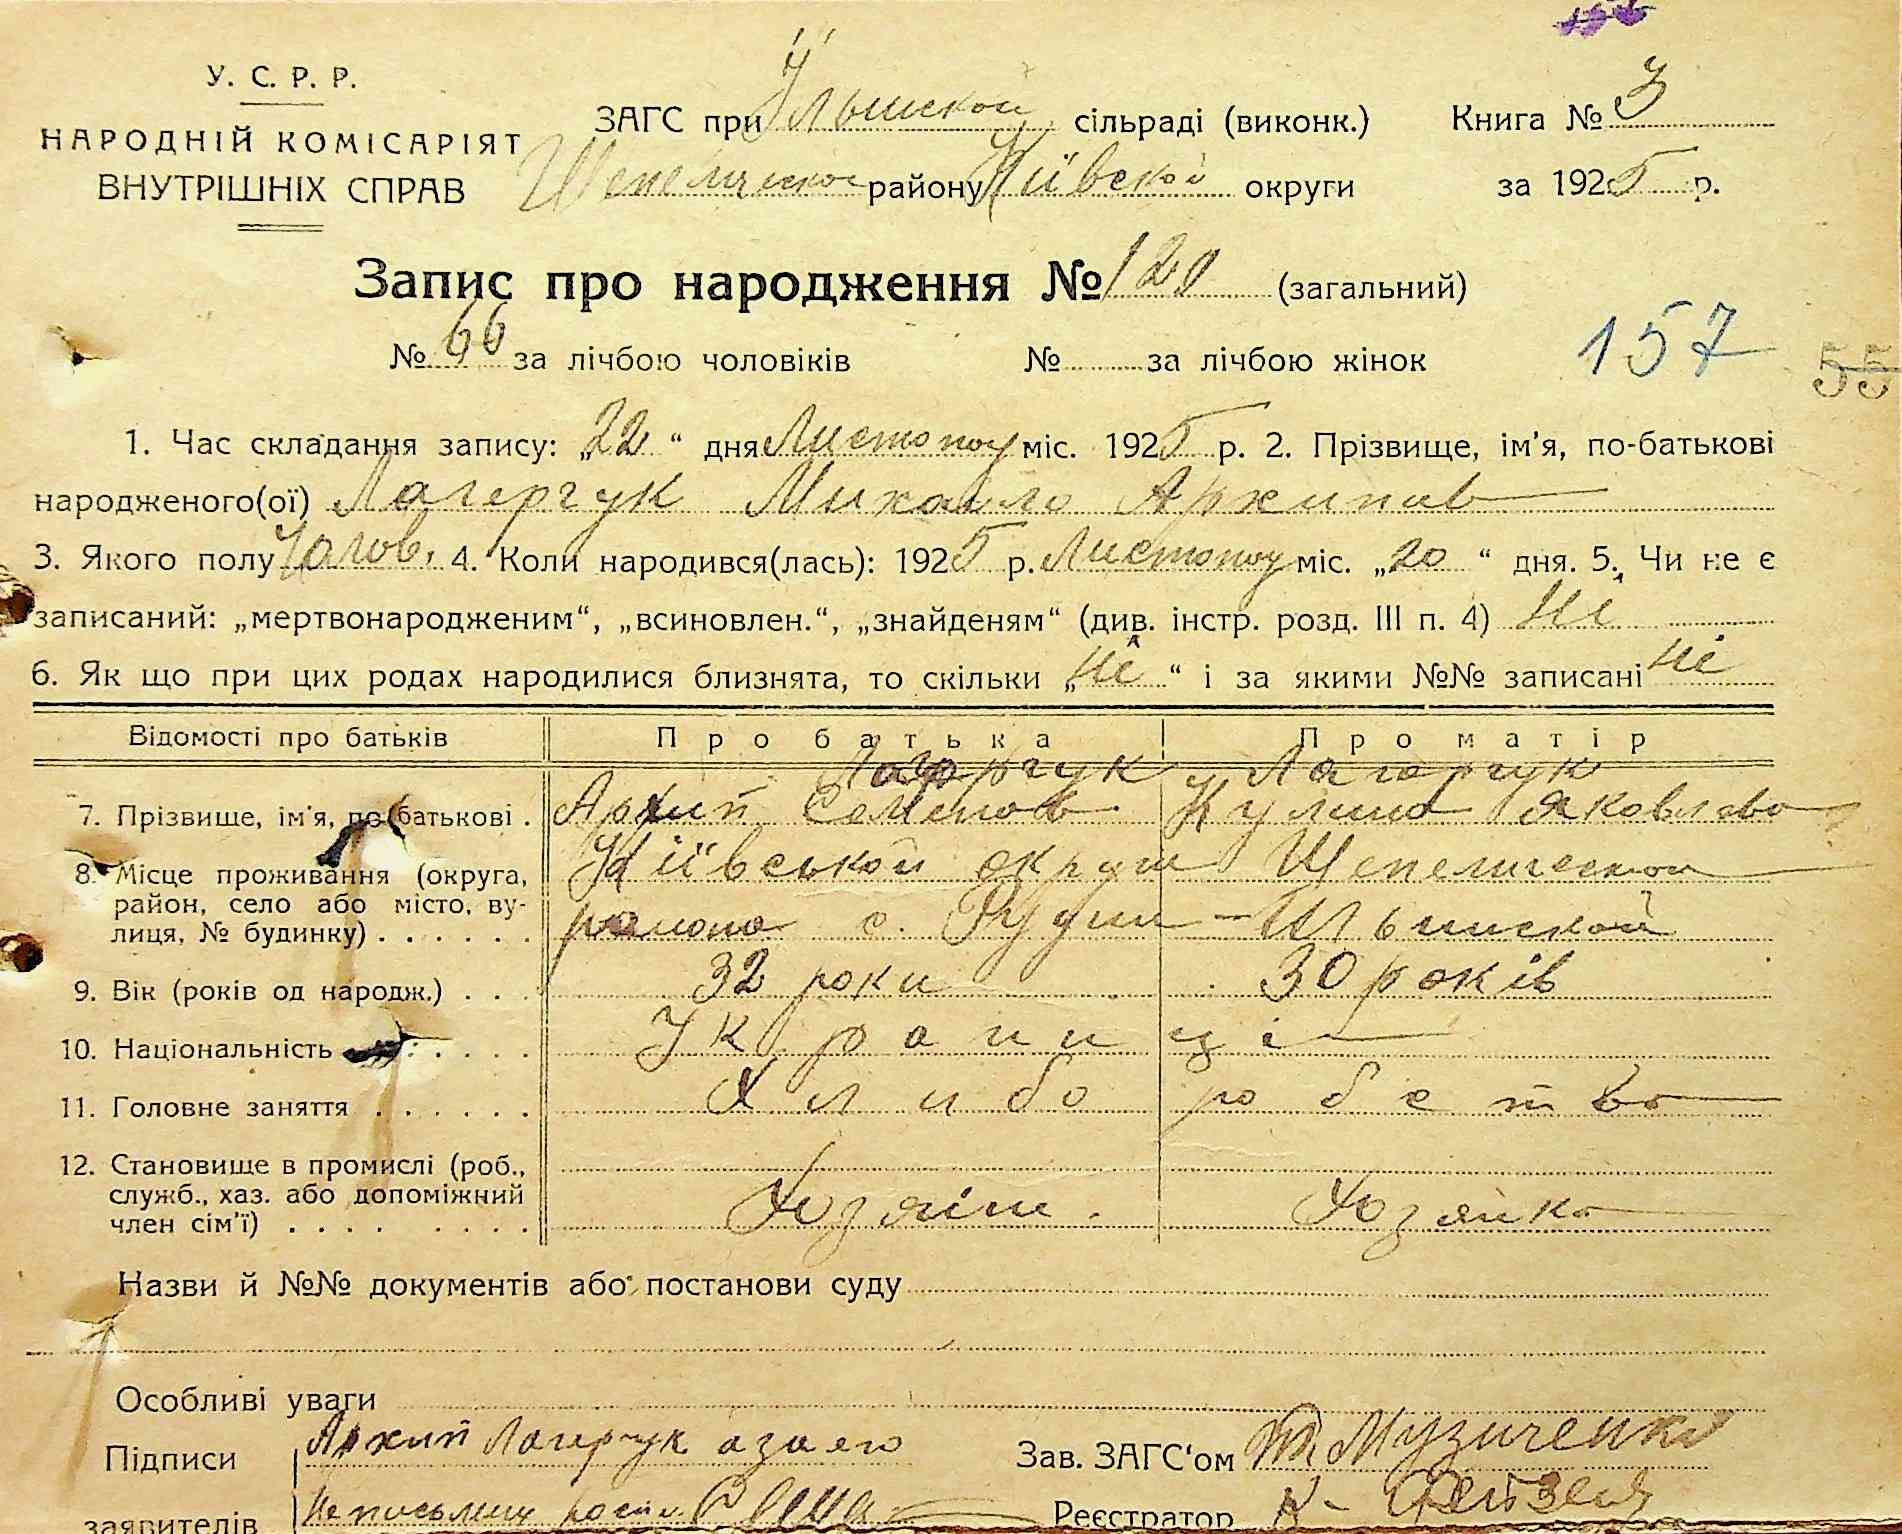 У. С. Р. Р.
НАРОДНІЙ КОМІСАРІЯТ
ВНУТРІШНІХ СПРАВ
ЗАГС при Ільинской сільраді (виконк.) Книга № 3
Шепелическое району Київской округи за 1925 р.
Запис про народження № 120 (загальний)
№ 66 за лічбою чоловіків № за лічбою жінок
157
55
1. Час складання запису: „22“ дня Листопоу міс. 1925 р. 2. Прізвище, ім'я, по-батькові
народженого(ої) Лагерчук Михаило Архипов
3. Якого полу Чолов. 4. Коли народився(лась): 1925 р. Листопоу міс. „20“ дня. 5. Чи не є
записаний: „мертвонародженим“, „всиновлен.“, „знайденям“ (див. інстр. розд. III п. 4) Ні
6. Як що при цих родах народилися близнята, то скільки „Ні“ і за якими №№ записані Ні
Відомості про батьків Про батька Про матір
Лагерчук Лагерчук
7. Прізвище, ім'я, по батькові . Архип Семенов Кулина Яковлево
8. Місце проживання (округа, Київськой округи Шепелическои
район, село або місто, ву- района с. Рудни-Ільинской
лиця, № будинку) . . . . . .
9. Вік (років од народж.) . . . 32 роки 30 років
10. Національність . . . . . Украинці
11. Головне заняття . . . . . . Хлиборобство
12. Становище в промислі (роб.,
служб., хаз. або допоміжний
член сім'ї) . . . . . . . . Хозяїн. Хозяйка
Назви й №№ документів або постанови суду
Особливі уваги
Підписи Архип Лагерчук а за его Зав. ЗАГС'ом Музиченко
заявителів Неписьмен роспи Реєстратор